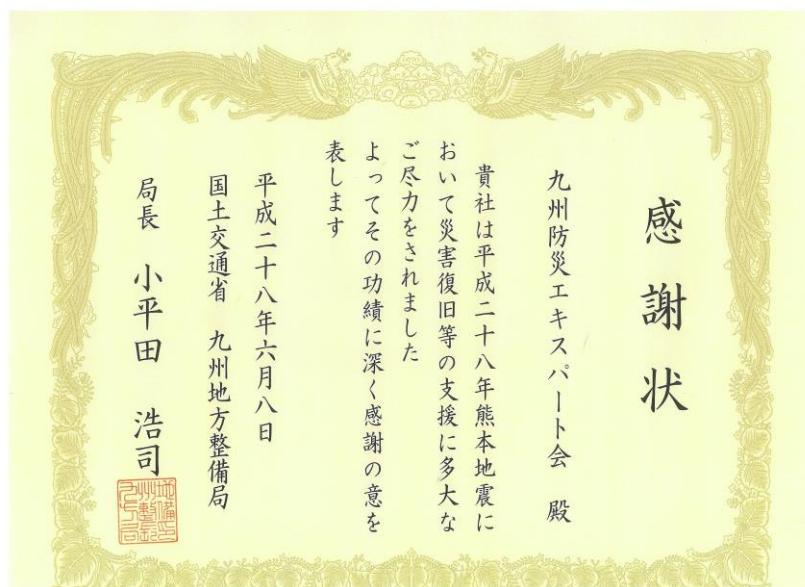 感謝状
九州防災エキスパート会 殿
貴社は平成二十八年熊本地震に
おいて災害復旧等の支援に多大な
ご尽力をされました
よってその功績に深く感謝の意を
表します
平成二十八年六月八日
国土交通省 九州地方整備局
局長 小平田 浩司